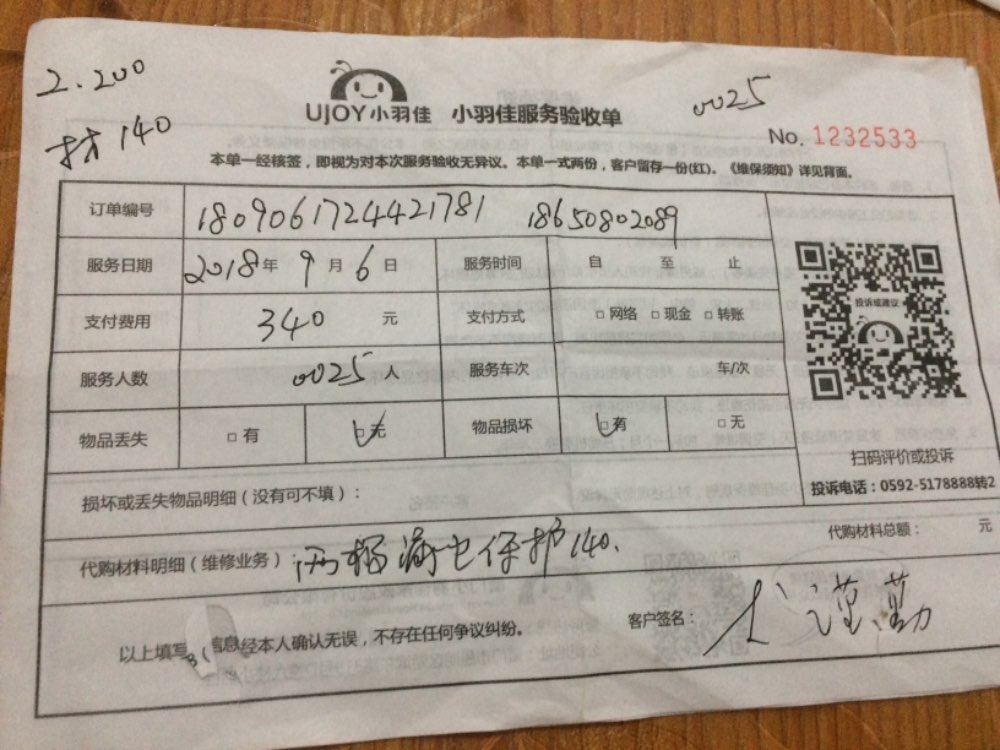 2.200
材140
UJOY小羽佳 小羽佳服务验收单
0025
No. 1232533
本单一经核签，即视为对本次服务验收无异议。本单一式两份，客户留存一份(红)。《维保须知》详见背面。
订单编号 1809061724421781 18650802089
服务日期 2018年9月6日 服务时间 自 至 止
支付费用 340 元 支付方式 □网络 □现金 □转账
服务人数 0025 人 服务车次 车/次
物品丢失 □有 □无 物品损坏 □有 □无
投诉或建议
扫码评价或投诉
投诉电话：0592-5178888转2
损坏或丢失物品明细（没有可不填）：
代购材料总额： 元
代购材料明细（维修业务）：两极漏电保护140.
以上填写 信息经本人确认无误，不存在任何争议纠纷。
客户签名：